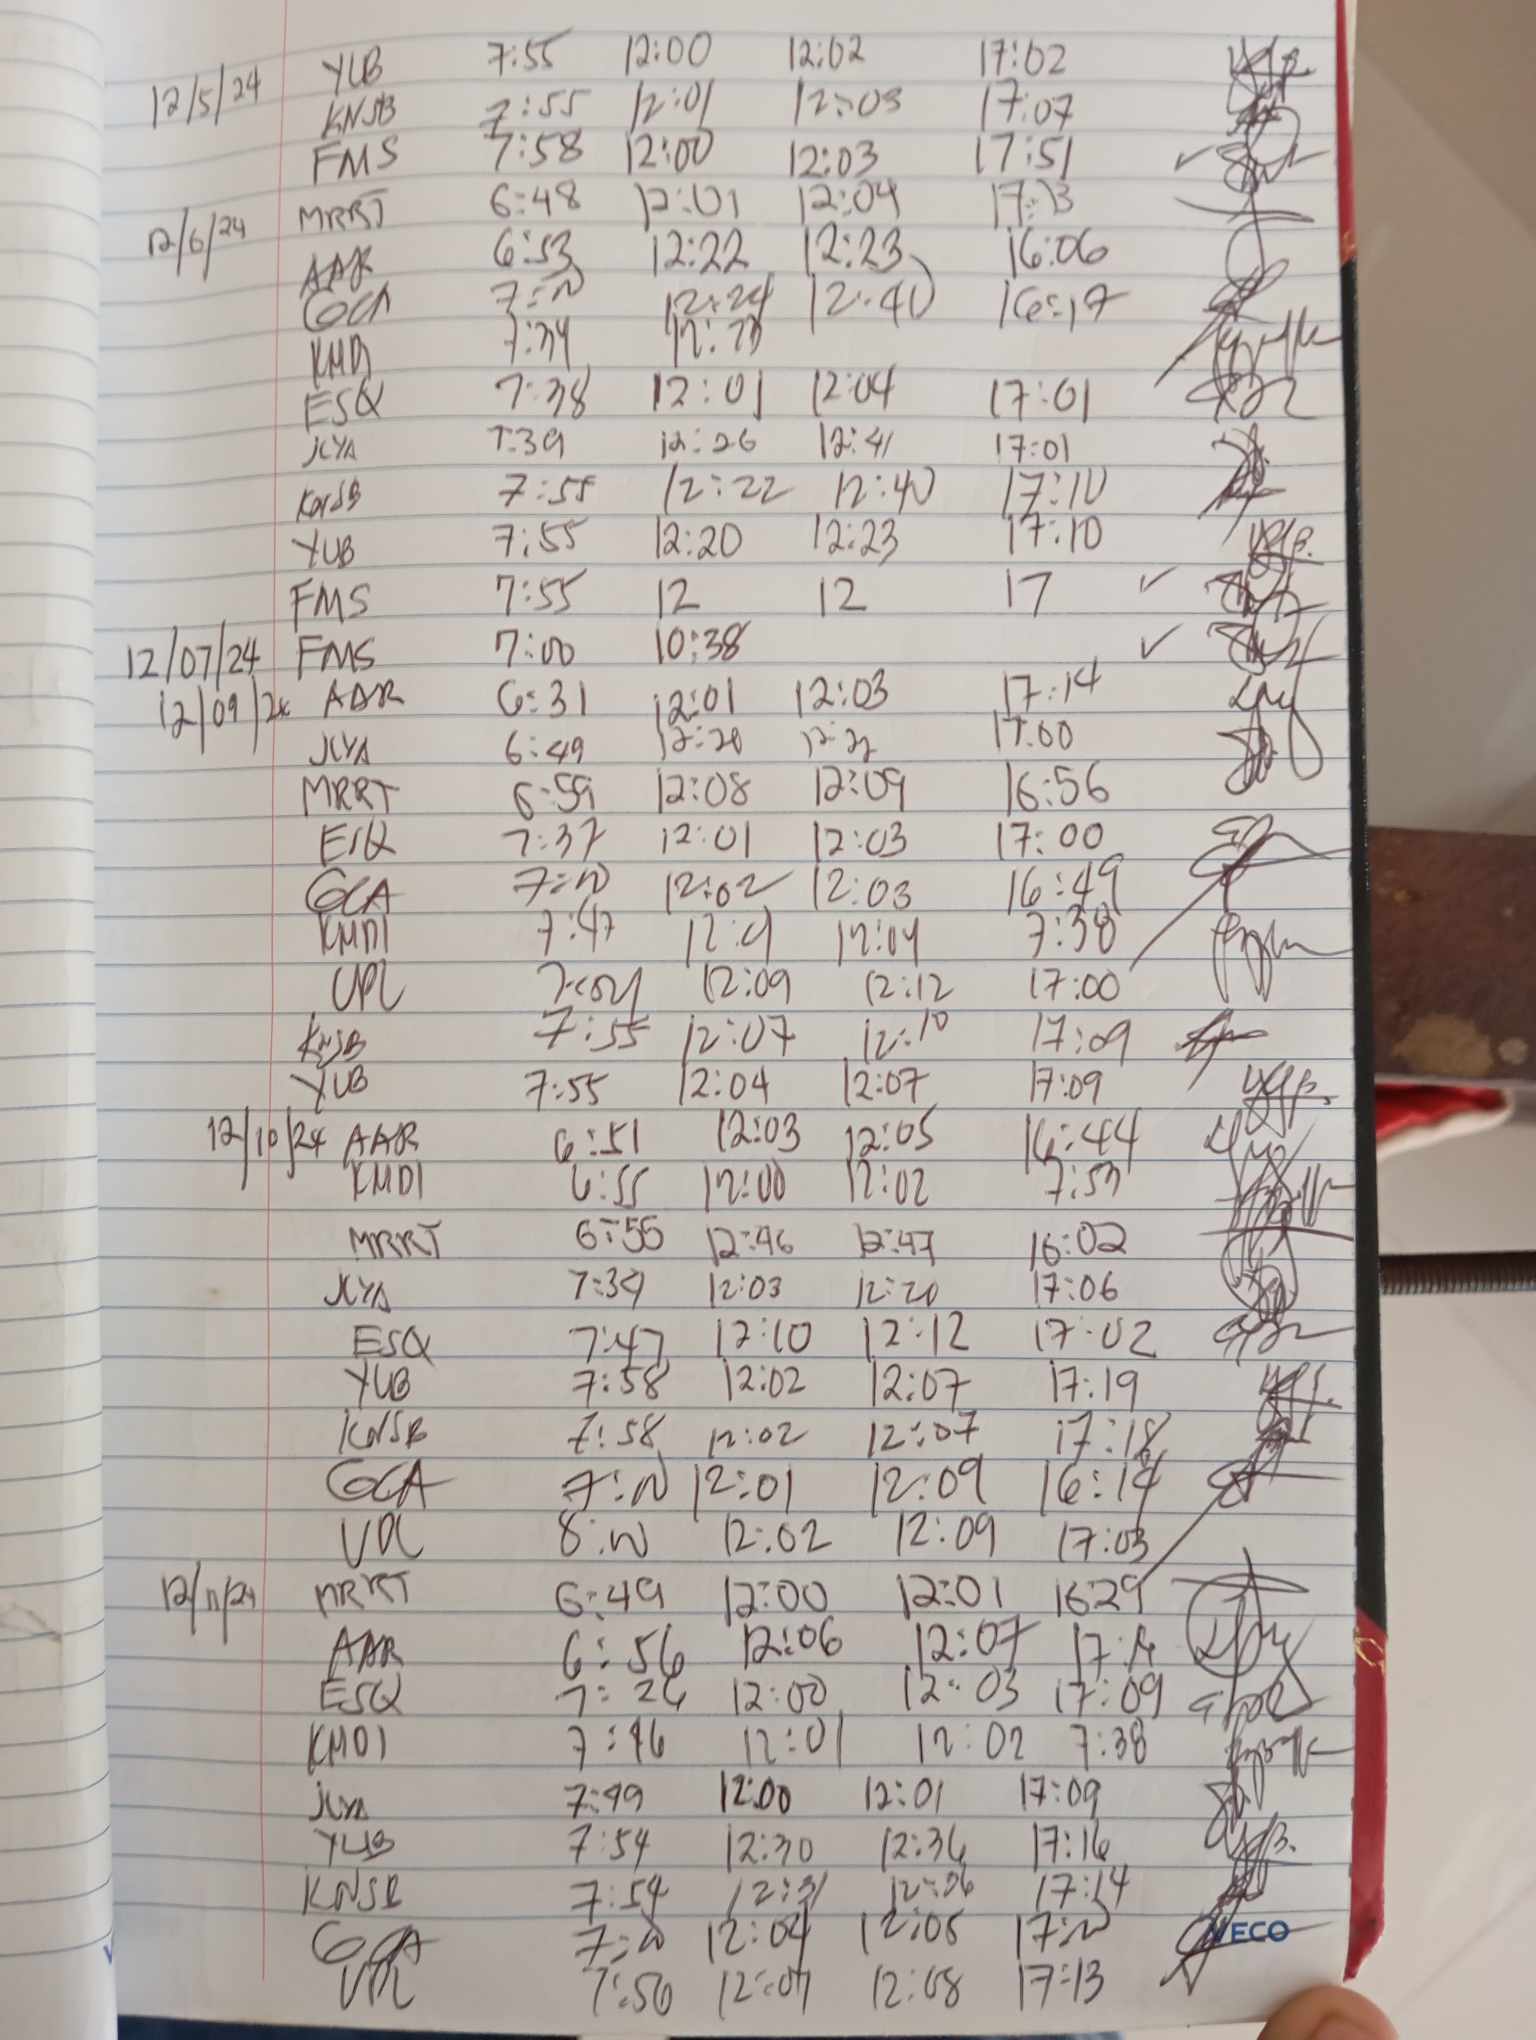 YUB 7:55 12:00 12:02 17:02
12/5/24 KNSB 7:55 12:01 12:03 17:07
FMS 7:58 12:00 12:03 17:51 ✓
MRRT 6:48 12:01 12:04 17:13
12/6/24 AAR 6:53 12:22 12:23 16:06
GCA 12:24 12:40 16:17
KMDI 7:34
ESQ 7:38 12:01 12:04 17:01
JCYA 7:39 12:26 12:41 17:01
KNSB 7:55 12:22 12:40 17:10
YUB 7:55 12:20 12:23 17:10
FMS 7:55 12 12 17 ✓
12/07/24 FMS 7:00 10:38 ✓
12/09/24 AAR 6:31 12:01 12:03 17:14
JCYA 6:49 12:20 12:22 17:00
MRRT 6:59 12:08 12:09 16:56
ESQ 7:37 12:01 12:03 17:00
GCA 12:02 12:03 16:49
KMDI 7:47 12:04 7:38
VPL 12:09 12:12 17:00
KNSB 7:55 12:07 12:10 17:09
YUB 7:55 12:04 12:07 17:09
12/10/24 AAR 6:51 12:03 12:05 16:44
KMDI 6:55 12:00 12:02 7:53
MRRT 6:55 12:46 12:47 16:02
JCYA 7:39 12:03 12:20 17:06
ESQ 7:47 12:10 12:12 17:02
YUB 7:58 12:02 12:07 17:19
KNSB 7:58 12:02 12:07 17:18
GCA 12:01 12:09 16:14
VPL 12:02 12:09 17:03
12/11/24 MRRT 6:49 12:00 12:01 1629
AAR 6:56 12:06 12:07
ESQ 7:26 12:00 12:03 17:09
KMDI 7:46 12:01 12:02 7:38
JCYA 7:49 12:00 12:01 17:09
YUB 7:54 12:30 12:36 17:16
KNSB 7:54 12:31 12:36 17:14
GCA 12:04 12:05
VECO
VPL 7:50 12:07 12:08 17:13